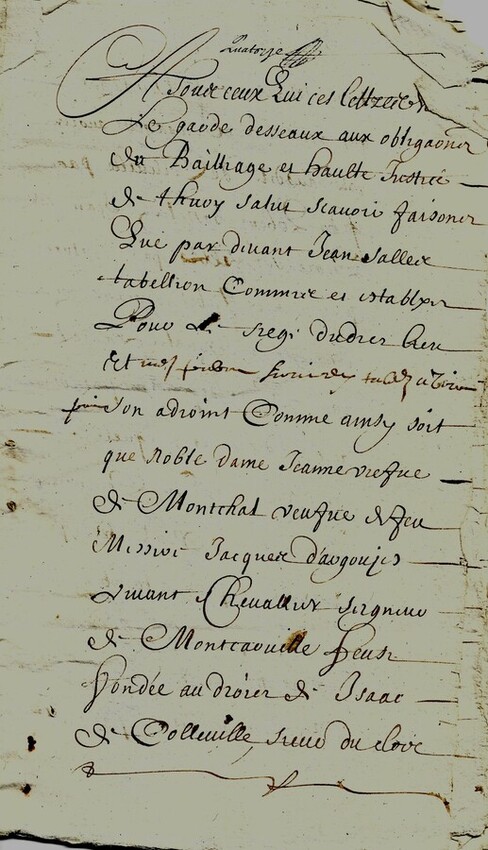 Quatorze
A Tous ceux Qui ces lettres
Le garde des seaux aux obligaons
du Bailliage et haulte Justice
de thury salut scavoir faisons
Que par devant Jean sallect
tabellion Commis et establyr
Pour Le siege dudict lieu
Et
son adroinct Comme ainsy soit
que Noble dame Jeanne
de Montchal veufue de feu
Messire Jacques d'argouges
vivant Chevallier seigneur
de Montcarville
fondée au droict de Isaac
de Colleville sieur du clos